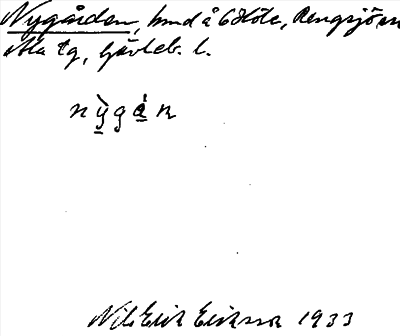 Nygården, hmd å 6 Höle, Rengsjö sn
Ala tg, Gävleb. l.
nỳgȧn
Nils Erik Eriksson 1933